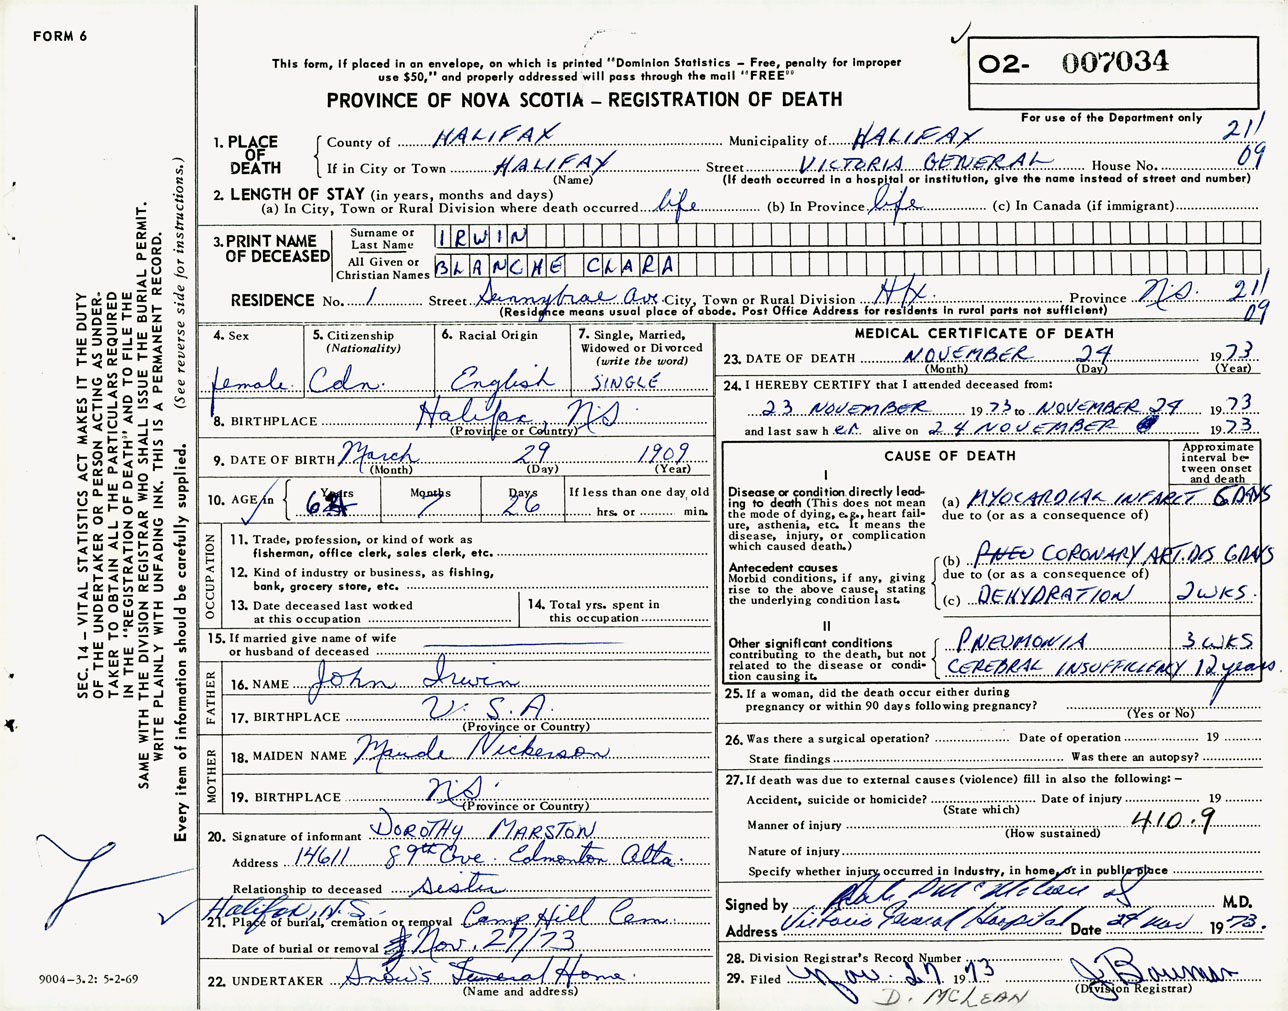 FORM 6
This form, if placed in an envelope, on which is printed "Dominion Statistics – Free, penalty for improper
use $50," and properly addressed will pass through the mail "FREE"
PROVINCE OF NOVA SCOTIA – REGISTRATION OF DEATH
02- 007034
For use of the Department only
211
09
1. PLACE OF DEATH
County of HALIFAX Municipality of HALIFAX
If in City or Town HALIFAX Street VICTORIA GENERAL House No.
(Name) (If death occurred in a hospital or institution, give the name instead of street and number)
2. LENGTH OF STAY (in years, months and days)
(a) In City, Town or Rural Division where death occurred life (b) In Province life (c) In Canada (if immigrant)
3. PRINT NAME OF DECEASED
Surname or Last Name IRWIN
All Given or Christian Names BLANCHE CLARA
RESIDENCE No. 1 Street Sunnybrae Ave City, Town or Rural Division Hfx. Province N.S. 211
09
(Residence means usual place of abode. Post Office Address for residents in rural parts not sufficient)
4. Sex
female
5. Citizenship (Nationality)
Cdn.
6. Racial Origin
English
7. Single, Married, Widowed or Divorced (write the word)
SINGLE
8. BIRTHPLACE Halifax, N.S.
(Province or Country)
9. DATE OF BIRTH March 29 1909
(Month) (Day) (Year)
10. AGE in
Years 64
Months 7
Days 26
If less than one day old
hrs. or min.
OCCUPATION
11. Trade, profession, or kind of work as
fisherman, office clerk, sales clerk, etc.
12. Kind of industry or business, as fishing,
bank, grocery store, etc.
13. Date deceased last worked
at this occupation
14. Total yrs. spent in
this occupation
15. If married give name of wife
or husband of deceased
FATHER
16. NAME John Irwin
17. BIRTHPLACE U.S.A.
(Province or Country)
MOTHER
18. MAIDEN NAME Maude Nickerson
19. BIRTHPLACE N.S.
(Province or Country)
20. Signature of informant DOROTHY MARSTON
Address 14611 89th Ave. Edmonton Alta.
Relationship to deceased Sister
Halifax, N.S.
21. Place of burial, cremation or removal Camp Hill Cem.
Date of burial or removal Nov. 27/73
22. UNDERTAKER Snow's Funeral Home.
(Name and address)
MEDICAL CERTIFICATE OF DEATH
23. DATE OF DEATH NOVEMBER 24 1973
(Month) (Day) (Year)
24. I HEREBY CERTIFY that I attended deceased from:
23 NOVEMBER 1973 to NOVEMBER 24 1973
and last saw her alive on 24 NOVEMBER 1973
CAUSE OF DEATH
Approximate interval between onset and death
I
Disease or condition directly lead-
ing to death (This does not mean
the mode of dying, e.g., heart fail-
ure, asthenia, etc. It means the
disease, injury, or complication
which caused death.)
(a) MYOCARDIAL INFARCT 6 DAYS
due to (or as a consequence of)
Antecedent causes
Morbid conditions, if any, giving
rise to the above cause, stating
the underlying condition last.
(b) PNEU CORONARY ART. DIS 6 DAYS
due to (or as a consequence of)
(c) DEHYDRATION 2 WKS.
II
Other significant conditions
contributing to the death, but not
related to the disease or condi-
tion causing it.
PNEUMONIA 3 WKS
CEREBRAL INSUFFICIENCY 12 years.
25. If a woman, did the death occur either during
pregnancy or within 90 days following pregnancy?
(Yes or No)
26. Was there a surgical operation? Date of operation 19
State findings Was there an autopsy?
27. If death was due to external causes (violence) fill in also the following: –
Accident, suicide or homicide? Date of injury 19
(State which)
Manner of injury 410.9
(How sustained)
Nature of injury
Specify whether injury occurred in Industry, in home, or in public place
Signed by M.D.
Address Victoria General Hospital Date 24 Nov 1973.
28. Division Registrar's Record Number
29. Filed Nov. 27 1973 J Bauman
(Division Registrar)
D. MCLEAN
SEC. 14 – VITAL STATISTICS ACT MAKES IT THE DUTY
OF THE UNDERTAKER OR PERSON ACTING AS UNDER-
TAKER TO OBTAIN ALL THE PARTICULARS REQUIRED
IN THE "REGISTRATION OF DEATH" AND TO FILE THE
SAME WITH THE DIVISION REGISTRAR WHO SHALL ISSUE THE BURIAL PERMIT.
WRITE PLAINLY WITH UNFADING INK. THIS IS A PERMANENT RECORD.
Every item of information should be carefully supplied. (See reverse side for instructions.)
9004–3.2: 5-2-69